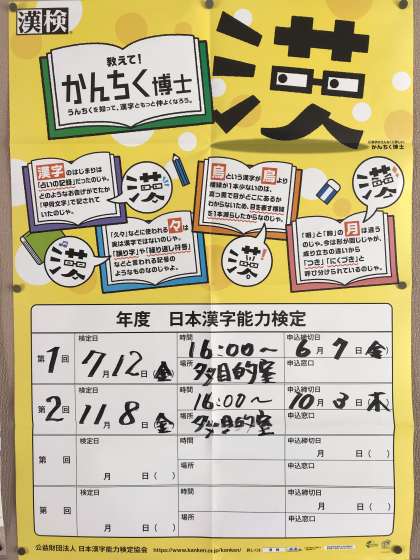 漢検
教えて!
かんちく博士
うんちくを知って、漢字ともっと仲よくなろう。
かんちく博士
漢字のはじまりは
「占いの記録」だったのじゃ。
どのようなお告げがでたか
「甲骨文字」で記されて
いたのじゃ。
「久々」などに使われる々は
実は漢字ではないのじゃ。
「踊り字」や「繰り返し符号」
などと言われる記号の
ようなものなのじゃよ。
烏という漢字が鳥より
横線が1本少ないのは、
真っ黒で目がどこにあるか
わからないため、目を表す横線
を1本減らしたからなのじゃ。
のじゃ。今は形が同じじゃが、
成り立ちの違いから
「つき」「にくづき」と
呼び分けられているのじゃ。
年度 日本漢字能力検定
第1回 検定日 7月12日(金) 時間 16:00～ 場所 多目的室 申込締切日 6月7日(金) 申込窓口
第2回 検定日 11月8日(金) 時間 16:00～ 場所 多目的室 申込締切日 10月3日(木) 申込窓口
第 回 検定日 月 日( ) 時間 場所 申込締切日 月 日( ) 申込窓口
第 回 検定日 月 日( ) 時間 場所 申込締切日 月 日( ) 申込窓口
公益財団法人 日本漢字能力検定協会 https://www.kanken.or.jp/kanken/